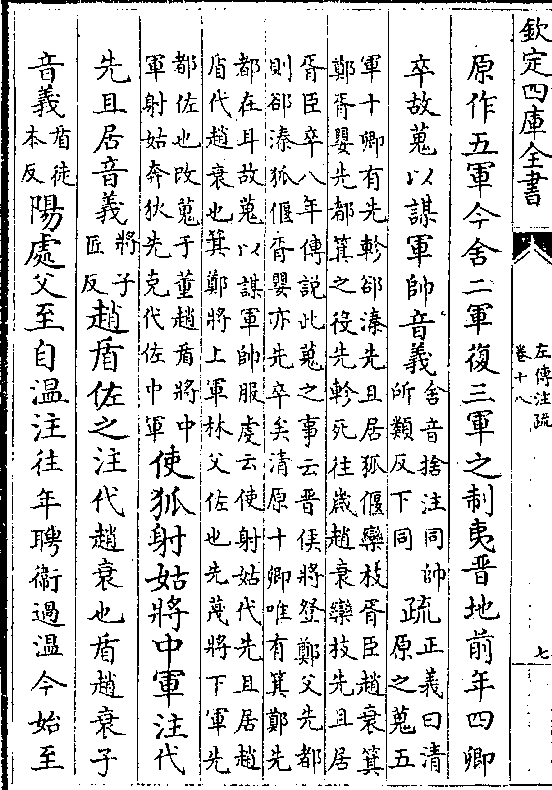 欽定四庫全書
左傳注疏
卷十八
七
原作五軍今舍二軍復三軍之制夷晉地前年四卿
卒故蒐以謀軍帥音義舍音捨注同帥
所類反下同疏正義曰清
原之蒐五
軍十卿有先軫郤溱先且居狐偃欒枝胥臣趙衰箕
鄭胥嬰先都箕之役先軫死往歲趙衰欒枝先且居
胥臣卒八年傳說此蒐之事云晉侯將登箕鄭父先都
則郤溱狐偃胥嬰亦先卒矣清原十卿唯有箕鄭先
都在耳故蒐以謀軍帥服虔云使射姑代先且居趙
盾代趙衰也箕鄭將上軍林父佐也先蔑將下軍先
都佐也改蒐于董趙盾將中
軍射姑奔狄先克代佐中軍使狐射姑將中軍注代
先且居音義將子
匠反趙盾佐之注代趙衰也盾趙衰子
音義盾徒
本反陽處父至自溫注往年聘衛過溫今始至